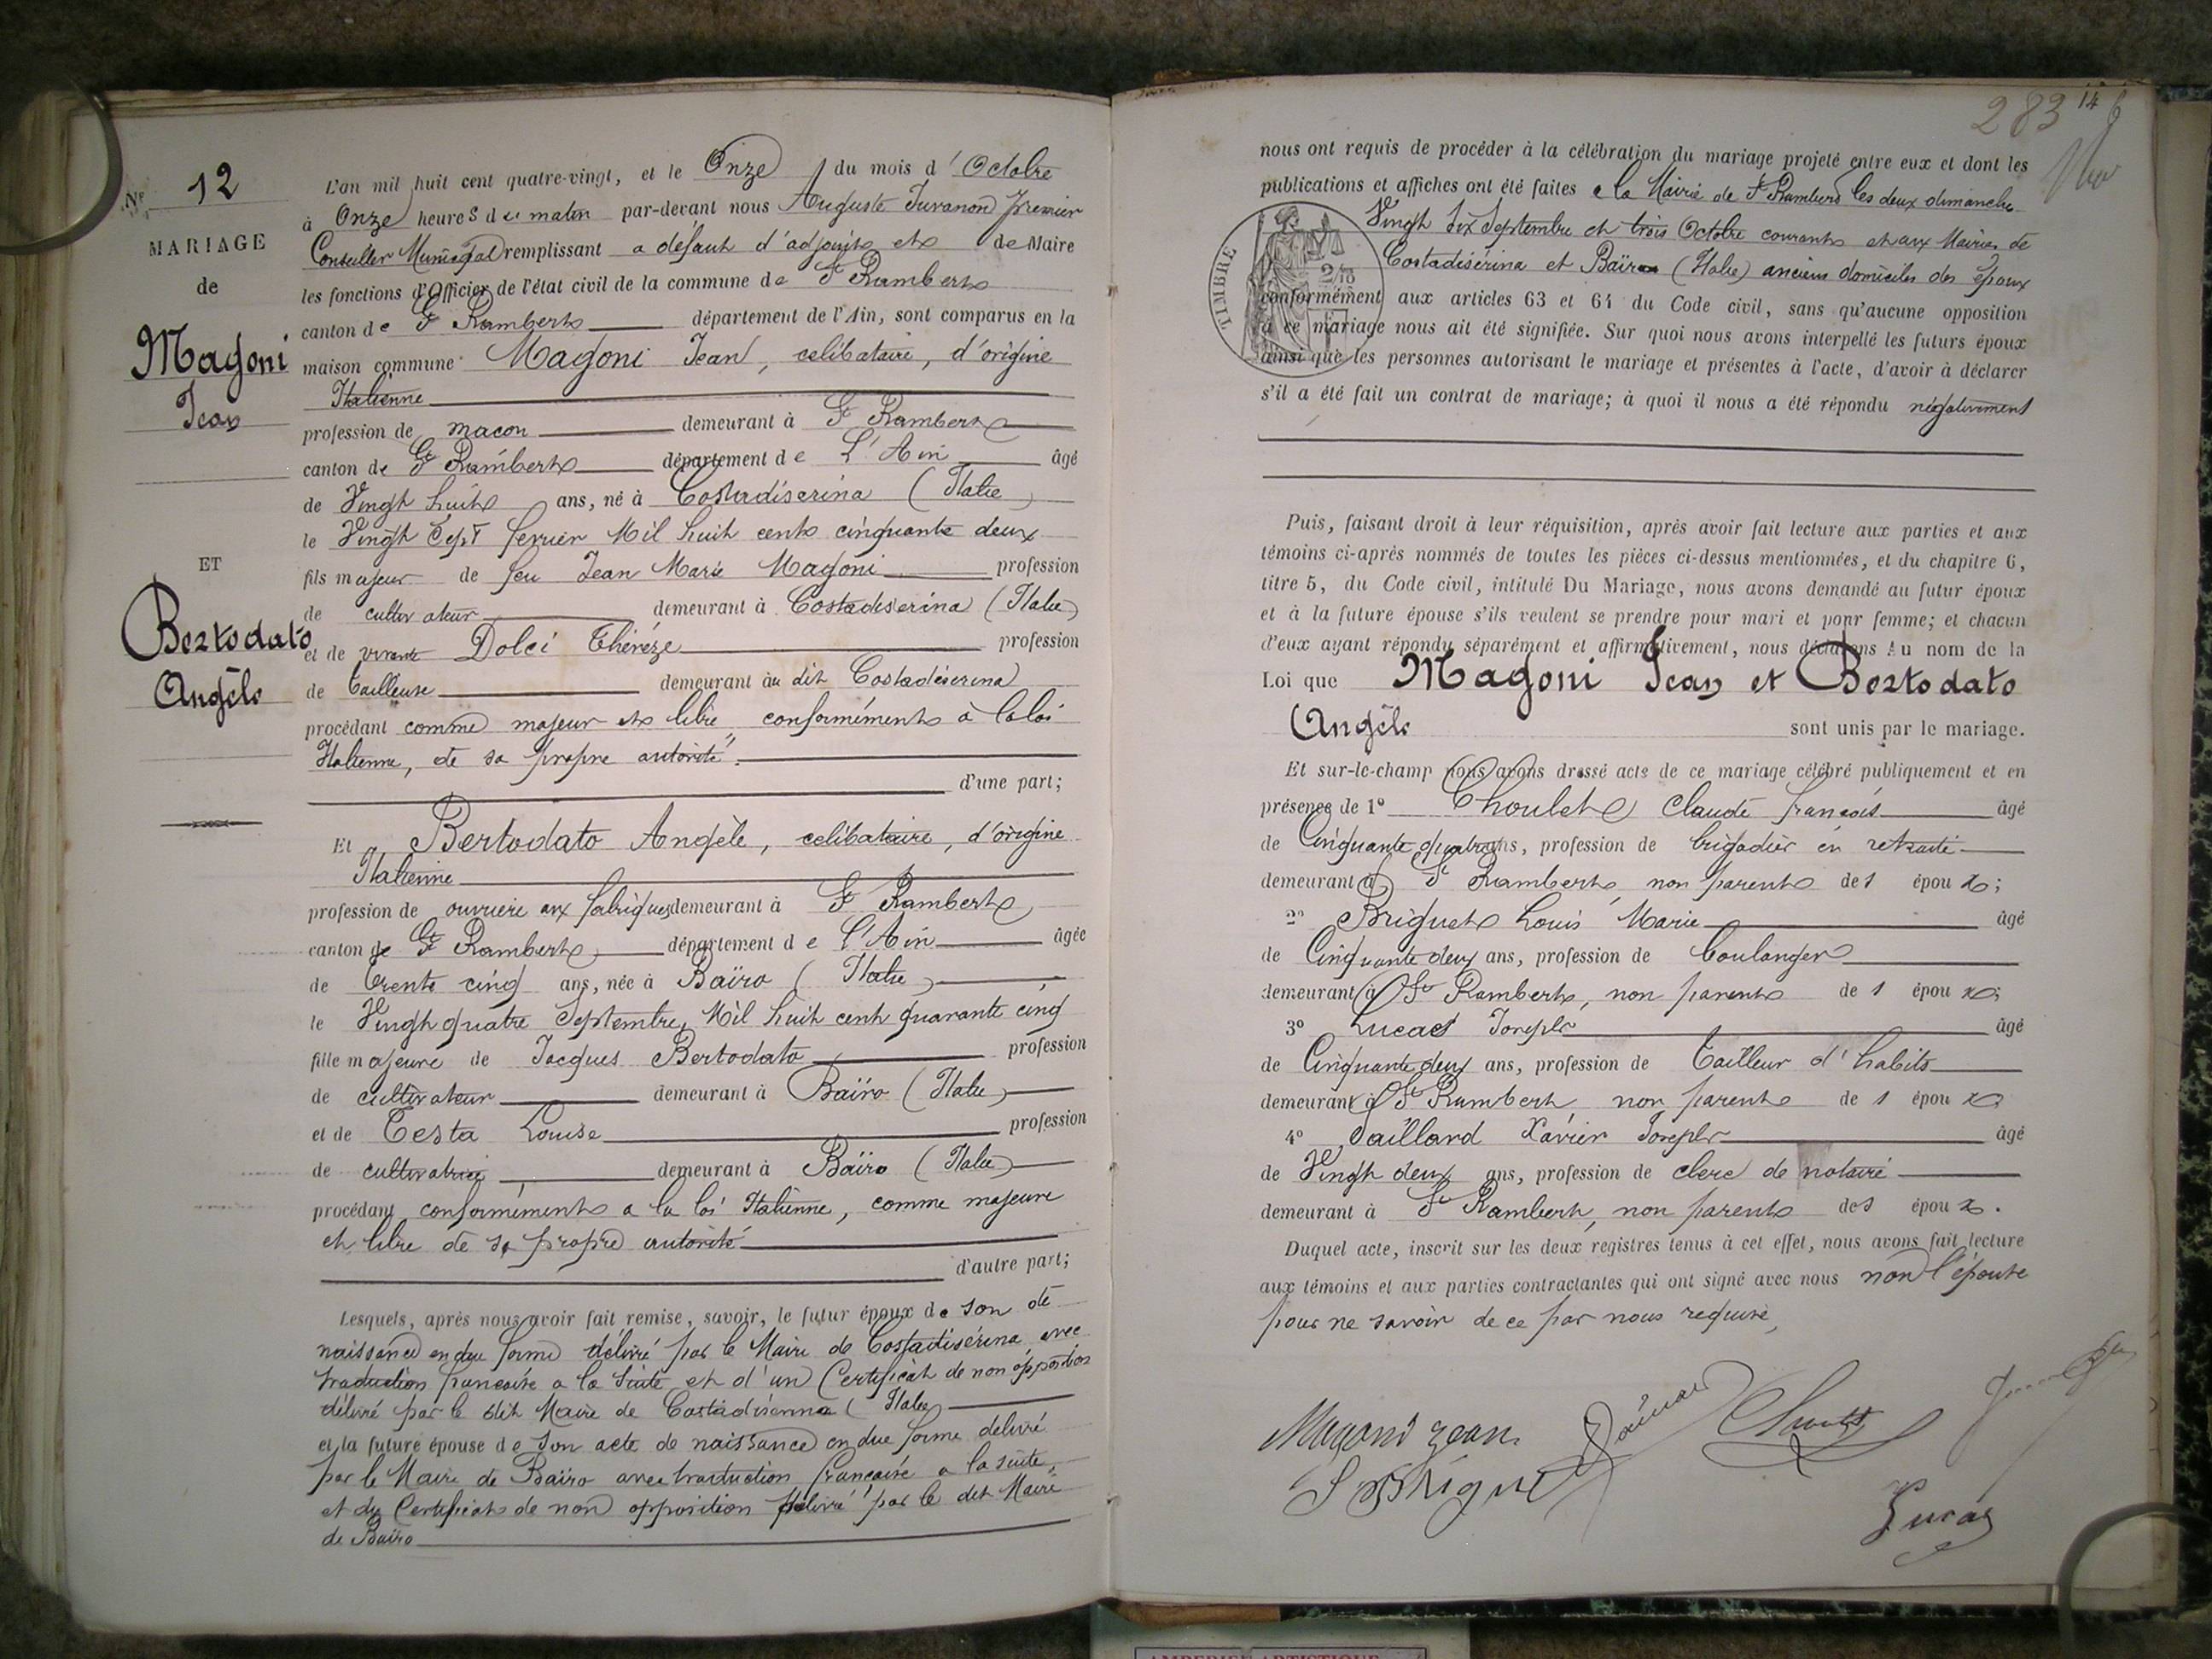 Nº 12
MARIAGE
de
Magoni
Jean
ET
Bertodato
Angèle
L'an mil huit cent quatre-vingt, et le Onze du mois d'Octobre
à Onze heures du matin par-devant nous Auguste Juvanon Premier
Conseiller Municipal remplissant a défaut d'adjoints et de Maire
les fonctions d'Officier de l'état civil de la commune de St Rambert
canton de St Rambert département de l'Ain, sont comparus en la
maison commune Magoni Jean, celibataire, d'origine
Italienne
profession de macon demeurant à St Rambert
canton de St Rambert département de L'Ain âgé
de Vingt huit ans, né à Costadiserina (Italie)
le Vingt Sept fevrier Mil huit cent cinquante deux
fils majeur de feu Jean Marie Magoni profession
de cultivateur demeurant à Costadiserina (Italie)
et de vivante Dolci Thérèze profession
de tailleuse demeurant au dit Costadiserina
procédant comme majeur et libre conformément à la loi
Italienne, de sa propre autorité
d'une part;
Et Bertodato Angèle, celibataire, d'origine
Italienne
profession de ouvrière aux fabriques demeurant à St Rambert
canton de St Rambert département de l'Ain âgée
de trente cinq ans, née à Baïro (Italie)
le Vingt quatre Septembre Mil huit cent quarante cinq
fille majeure de Jacques Bertodato profession
de cultivateur demeurant à Baïro (Italie)
et de Testa Louise profession
de cultivatrice demeurant à Baïro (Italie)
procédant conformément a la loi Italienne, comme majeure
et libre de sa propre autorité
d'autre part;
Lesquels, après nous avoir fait remise, savoir, le futur époux de son de
naissance en due forme délivré par le Maire de Costadisérina avec
traduction francaise a la suite et d'un Certificat de non opposition
délivré par le dit Maire de Costadiserina (Italie)
et la future épouse de son acte de naissance en due forme delivré
par le Maire de Baïro avec traduction francaise a la suite,
et du Certificat de non opposition délivré par le dit Maire
de Baïro
283 14
nous ont requis de procéder à la célébration du mariage projeté entre eux et dont les
publications et affiches ont été faites a la Mairie de St Rambert les deux dimanches
Vingt Six Septembre et trois Octobre courant et aux Mairies de
Costadisérina et Baïro (Italie) anciens domiciles des époux
TIMBRE
conformément aux articles 63 et 64 du Code civil, sans qu'aucune opposition
à ce mariage nous ait été signifiée. Sur quoi nous avons interpellé les futurs époux
ainsi que les personnes autorisant le mariage et présentes à l'acte, d'avoir à déclarer
s'il a été fait un contrat de mariage; à quoi il nous a été répondu négativement
Puis, faisant droit à leur réquisition, après avoir fait lecture aux parties et aux
témoins ci-après nommés de toutes les pièces ci-dessus mentionnées, et du chapitre 6,
titre 5, du Code civil, intitulé Du Mariage, nous avons demandé au futur époux
et à la future épouse s'ils veulent se prendre pour mari et pour femme; et chacun
d'eux ayant répondu séparément et affirmativement, nous déclarons au nom de la
Loi que Magoni Jean et Bertodato
Angèle sont unis par le mariage.
Et sur-le-champ nous avons dressé acte de ce mariage célébré publiquement et en
présence de 1º Choulet Claude francois âgé
de Cinquante quatre ans, profession de brigadier en retraite
demeurant à St Rambert non parent des époux;
2º Briguet Louis Marie âgé
de Cinquante deux ans, profession de boulanger
demeurant à St Rambert, non parent des époux;
3º Lucas Joseph âgé
de Cinquante deux ans, profession de tailleur d'habits
demeurant à St Rambert non parent des époux
4º Gaillard Xavier Joseph âgé
de Vingt deux ans, profession de clerc de notaire
demeurant à St Rambert, non parent des époux.
Duquel acte, inscrit sur les deux registres tenus à cet effet, nous avons fait lecture
aux témoins et aux parties contractantes qui ont signé avec nous non l'épouse
pour ne savoir de ce par nous requise,
Magoni Jean
Lucas